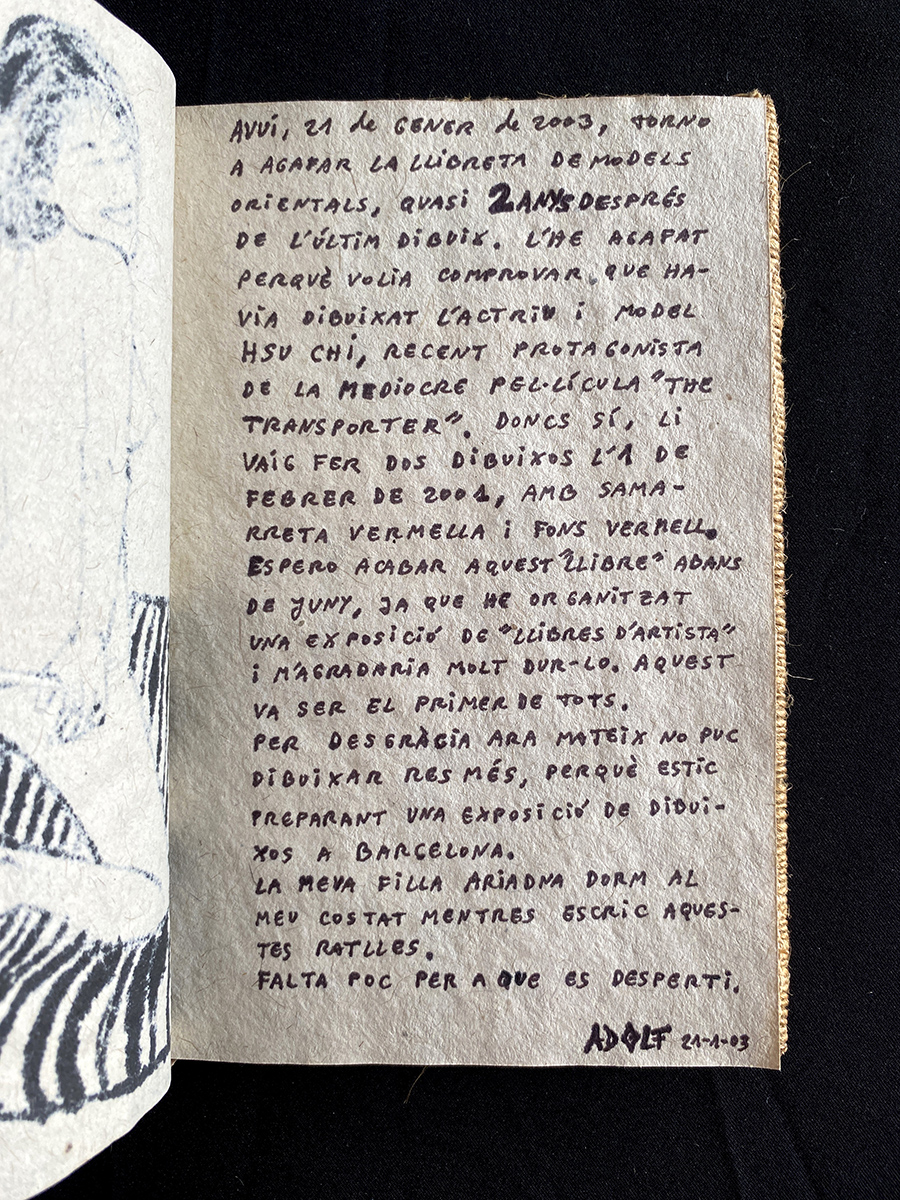 AVUI, 21 de GENER de 2003, TORNO
A AGAFAR LA LLIBRETA DE MODELS
ORIENTALS, QUASI 2 ANYS DESPRÉS
DE L'ÚLTIM DIBUIX. L'HE AGAFAT
PERQUÈ VOLIA COMPROVAR QUE HA-
VIA DIBUIXAT L'ACTRIU I MODEL
HSU CHI, RECENT PROTAGONISTA
DE LA MEDIOCRE PEL·LÍCULA "THE
TRANSPORTER". DONCS SÍ, LI
VAIG FER DOS DIBUIXOS L'1 DE
FEBRER DE 2001, AMB SAMA-
RRETA VERMELLA I FONS VERMELL.
ESPERO ACABAR AQUEST "LLIBRE" ABANS
DE JUNY, JA QUE HE ORGANITZAT
UNA EXPOSICIÓ DE "LLIBRES D'ARTISTA"
I M'AGRADARIA MOLT DUR-LO. AQUEST
VA SER EL PRIMER DE TOTS.
PER DESGRÀCIA ARA MATEIX NO PUC
DIBUIXAR RES MÉS, PERQUÈ ESTIC
PREPARANT UNA EXPOSICIÓ DE DIBUI-
XOS A BARCELONA.
LA MEVA FILLA ARIADNA DORM AL
MEU COSTAT MENTRES ESCRIC AQUES-
TES RATLLES.
FALTA POC PER A QUE ES DESPERTI.
ADOLF 21-1-03